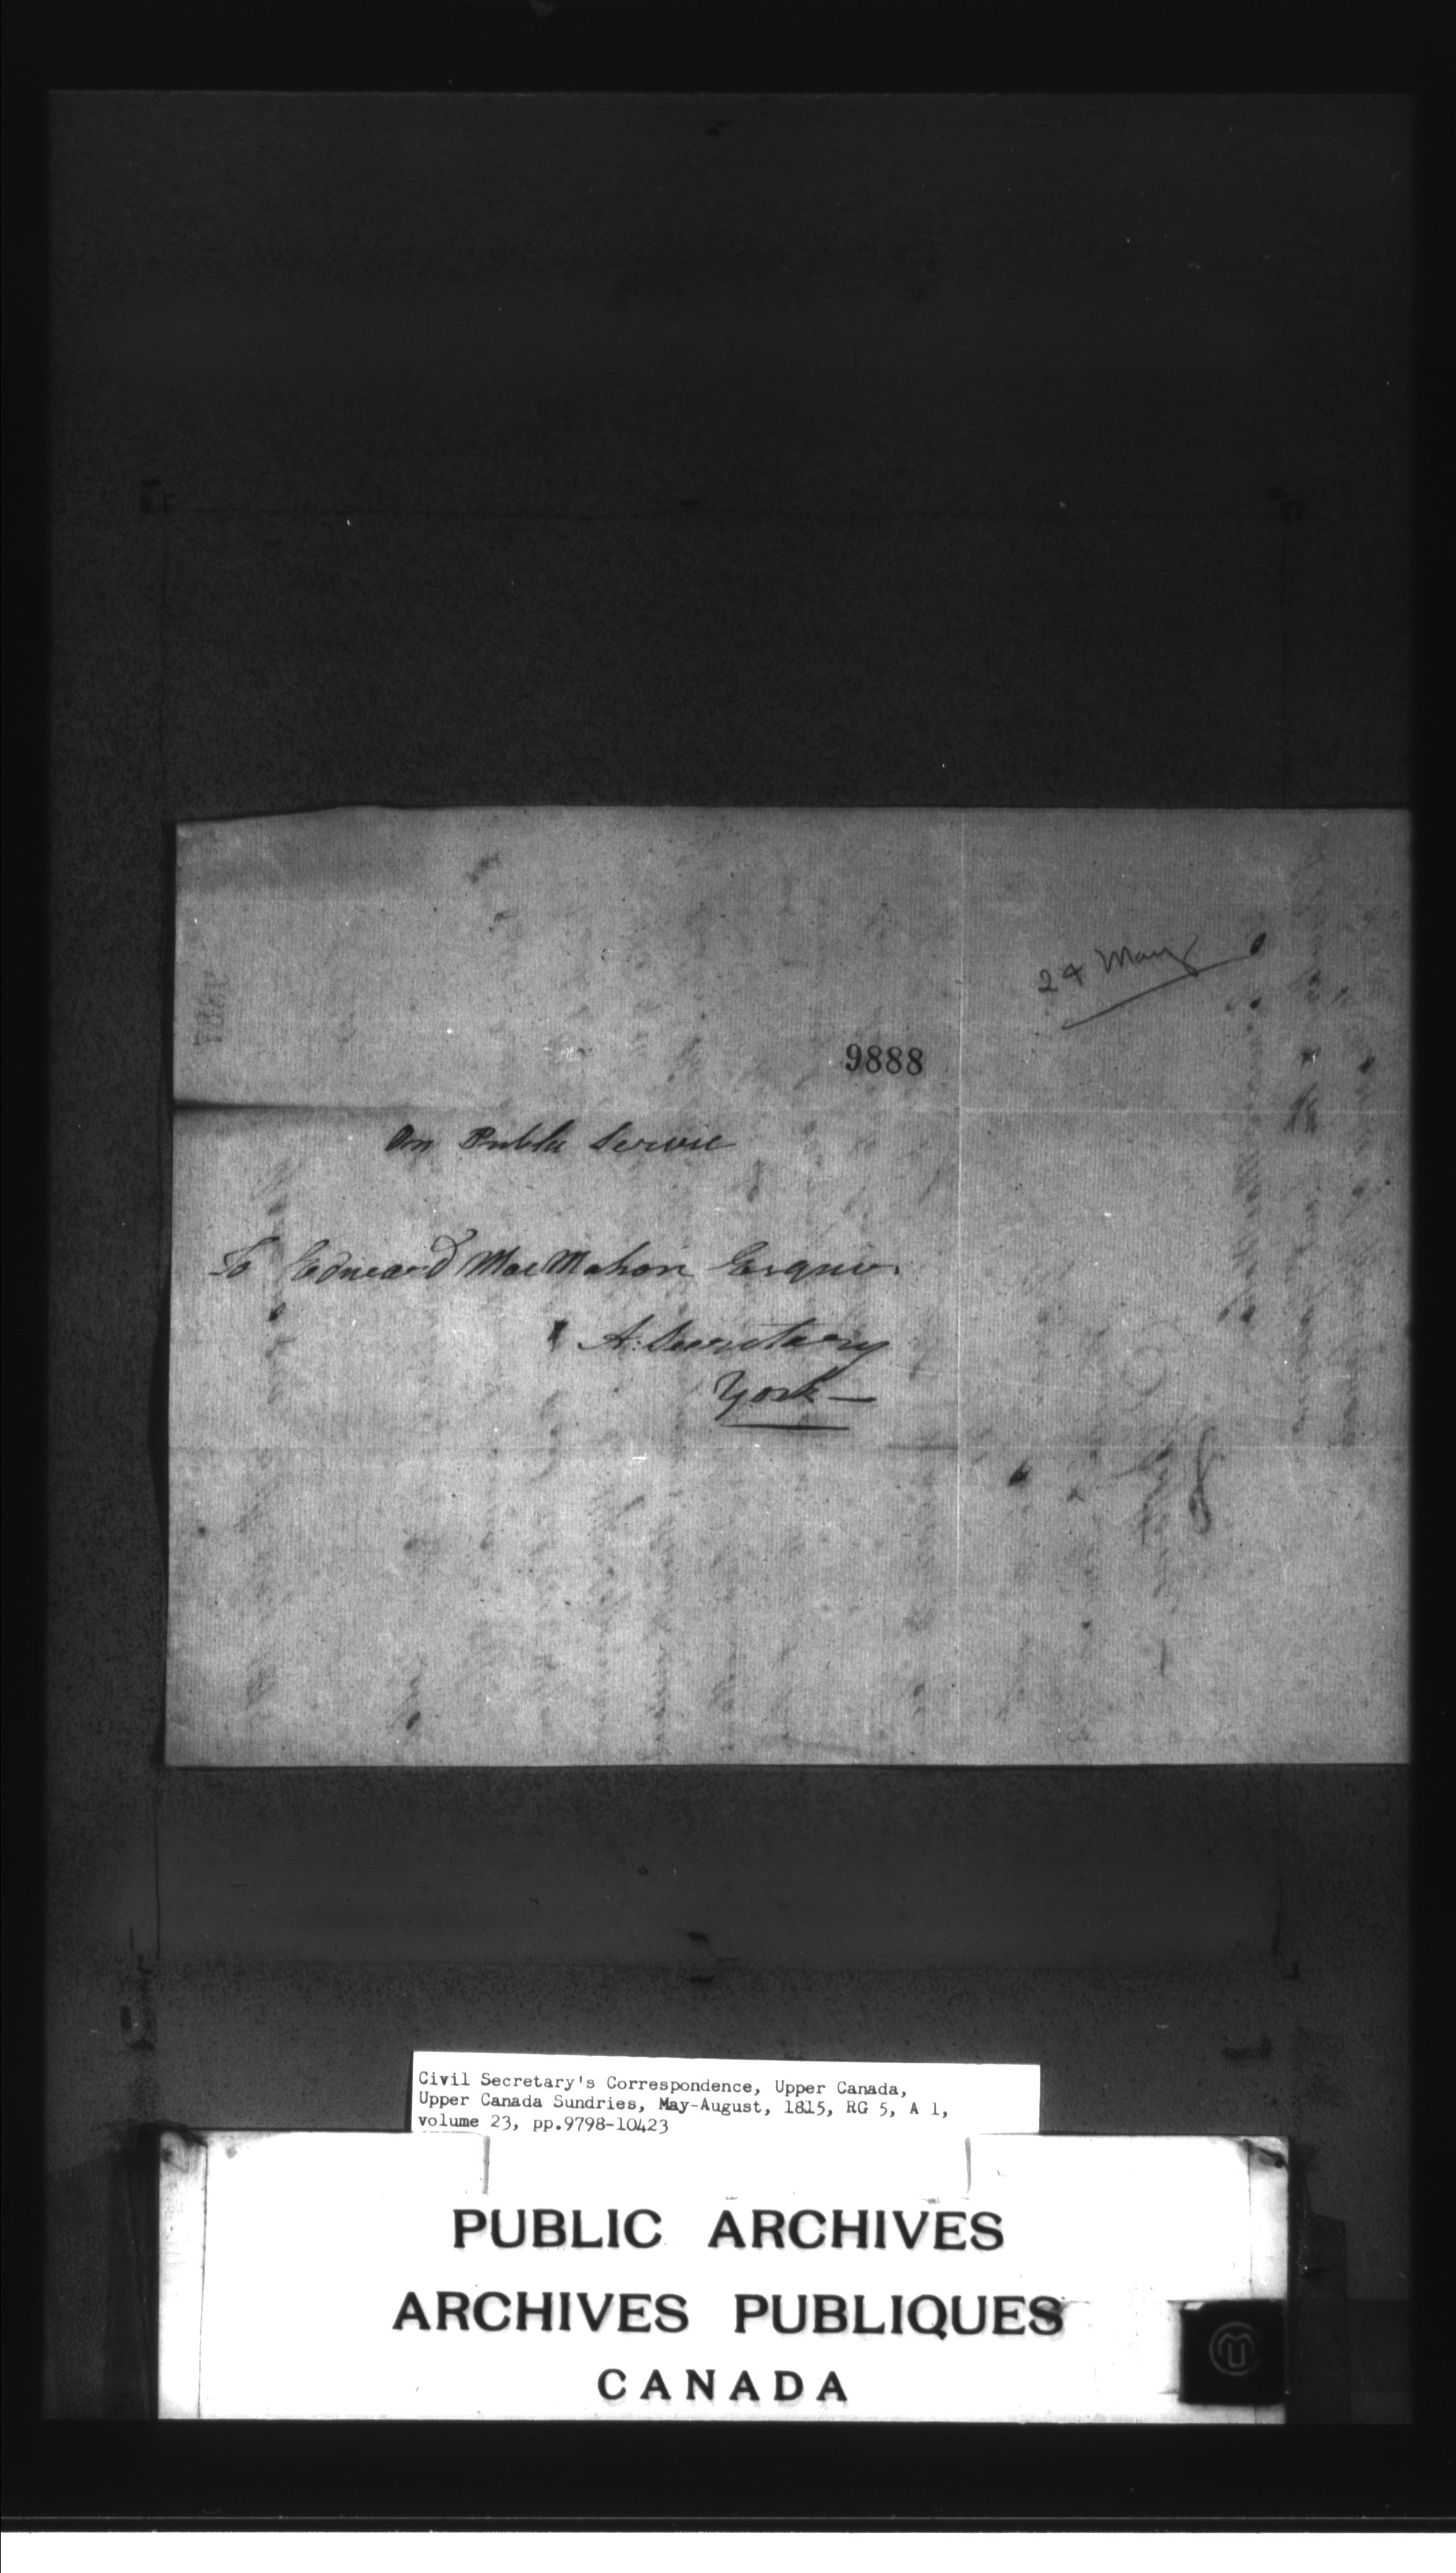 24 May
9888
On Public Service
To Edward MacMahon Esquire
A. Secretary
York —
Civil Secretary's Correspondence, Upper Canada,
Upper Canada Sundries, May-August, 1815, RG 5, A 1,
volume 23, pp.9798-10423
PUBLIC ARCHIVES
ARCHIVES PUBLIQUES
CANADA